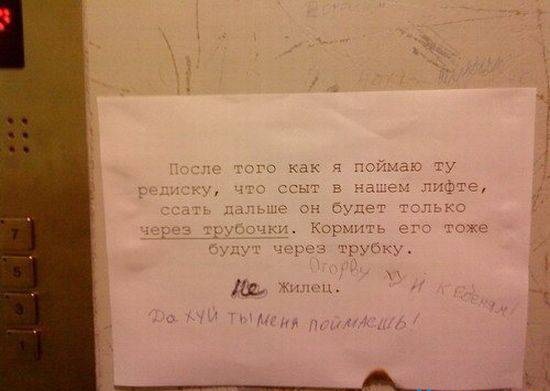 После того как я поймаю ту
редиску, что ссыт в нашем лифте,
ссать дальше он будет только
через трубочки. Кормить его тоже
будут через трубку.
Оторву хуй к ебеням!
Не Жилец.
Да хуй ты меня поймаешь!
7
5
3
1